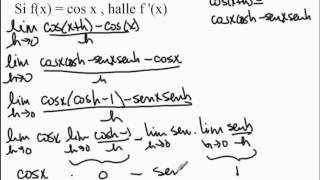 Si f(x) = cos x , halle f '(x)
cos(x+h) =
cosxcosh-senxsenh
lim h→0 cos(x+h) - cos(x) / h
lim h→0 cosxcosh-senxsenh-cosx / h
lim h→0 cosx(cosh-1)-senxsenh / h
lim h→0 cosx lim h→0 cosh-1 / h - lim h→0 sen. lim h→0 senh / h
cosx . 0 - sen 1